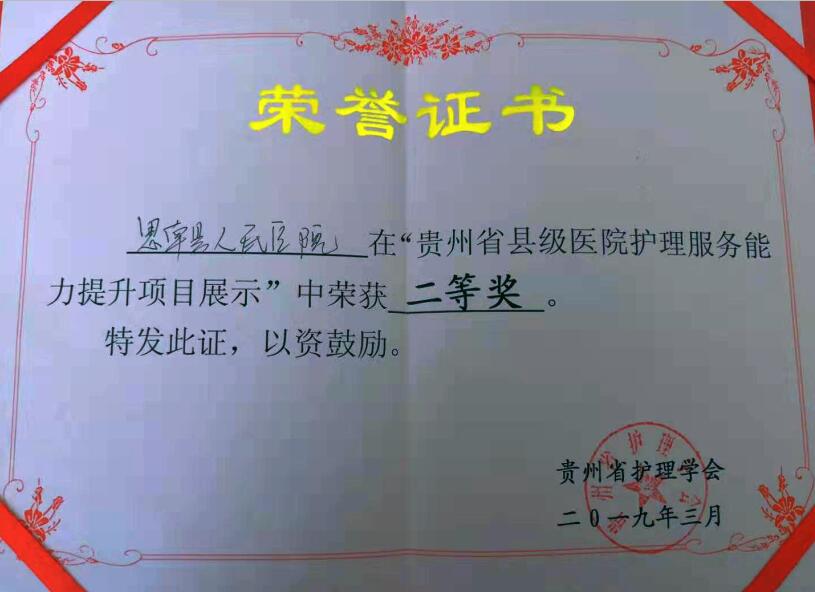 荣誉证书
思南县人民医院在“贵州省县级医院护理服务能
力提升项目展示”中荣获 二等奖 。
特发此证，以资鼓励。
贵州省护理学会
贵州省护理学会
二0一九年三月